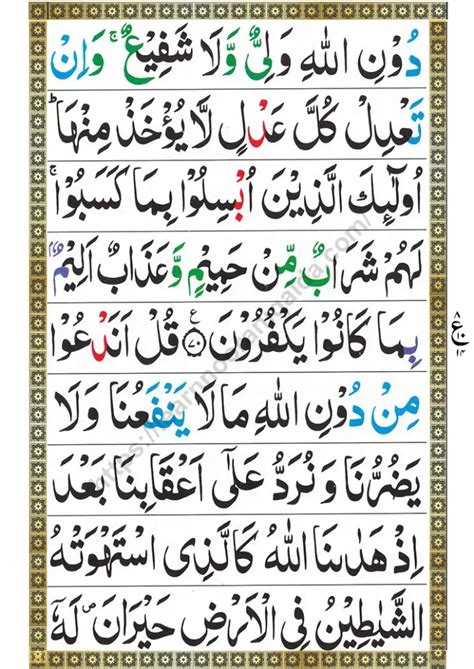 دُوْنِ اللّٰهِ وَلِیٌّ وَّلَا شَفِیْعٌ ۚ وَاِنْ
تَعْدِلْ كُلَّ عَدْلٍ لَّا یُؤْخَذْ مِنْهَا ؕ
اُولٰٓئِكَ الَّذِیْنَ اُبْسِلُوْا بِمَا كَسَبُوْا ۚ
لَهُمْ شَرَابٌ مِّنْ حَمِیْمٍ وَّعَذَابٌ اَلِیْمٌۢ
بِمَا كَانُوْا یَكْفُرُوْنَ ﴿۷۰﴾ ع قُلْ اَنَدْعُوْا
مِنْ دُوْنِ اللّٰهِ مَا لَا یَنْفَعُنَا وَلَا
یَضُرُّنَا وَنُرَدُّ عَلٰۤی اَعْقَابِنَا بَعْدَ
اِذْ هَدٰىنَا اللّٰهُ كَالَّذِی اسْتَهْوَتْهُ
الشَّیٰطِیْنُ فِی الْاَرْضِ حَیْرَانَ ۪ لَهٗۤ
۸
ع
۱۴